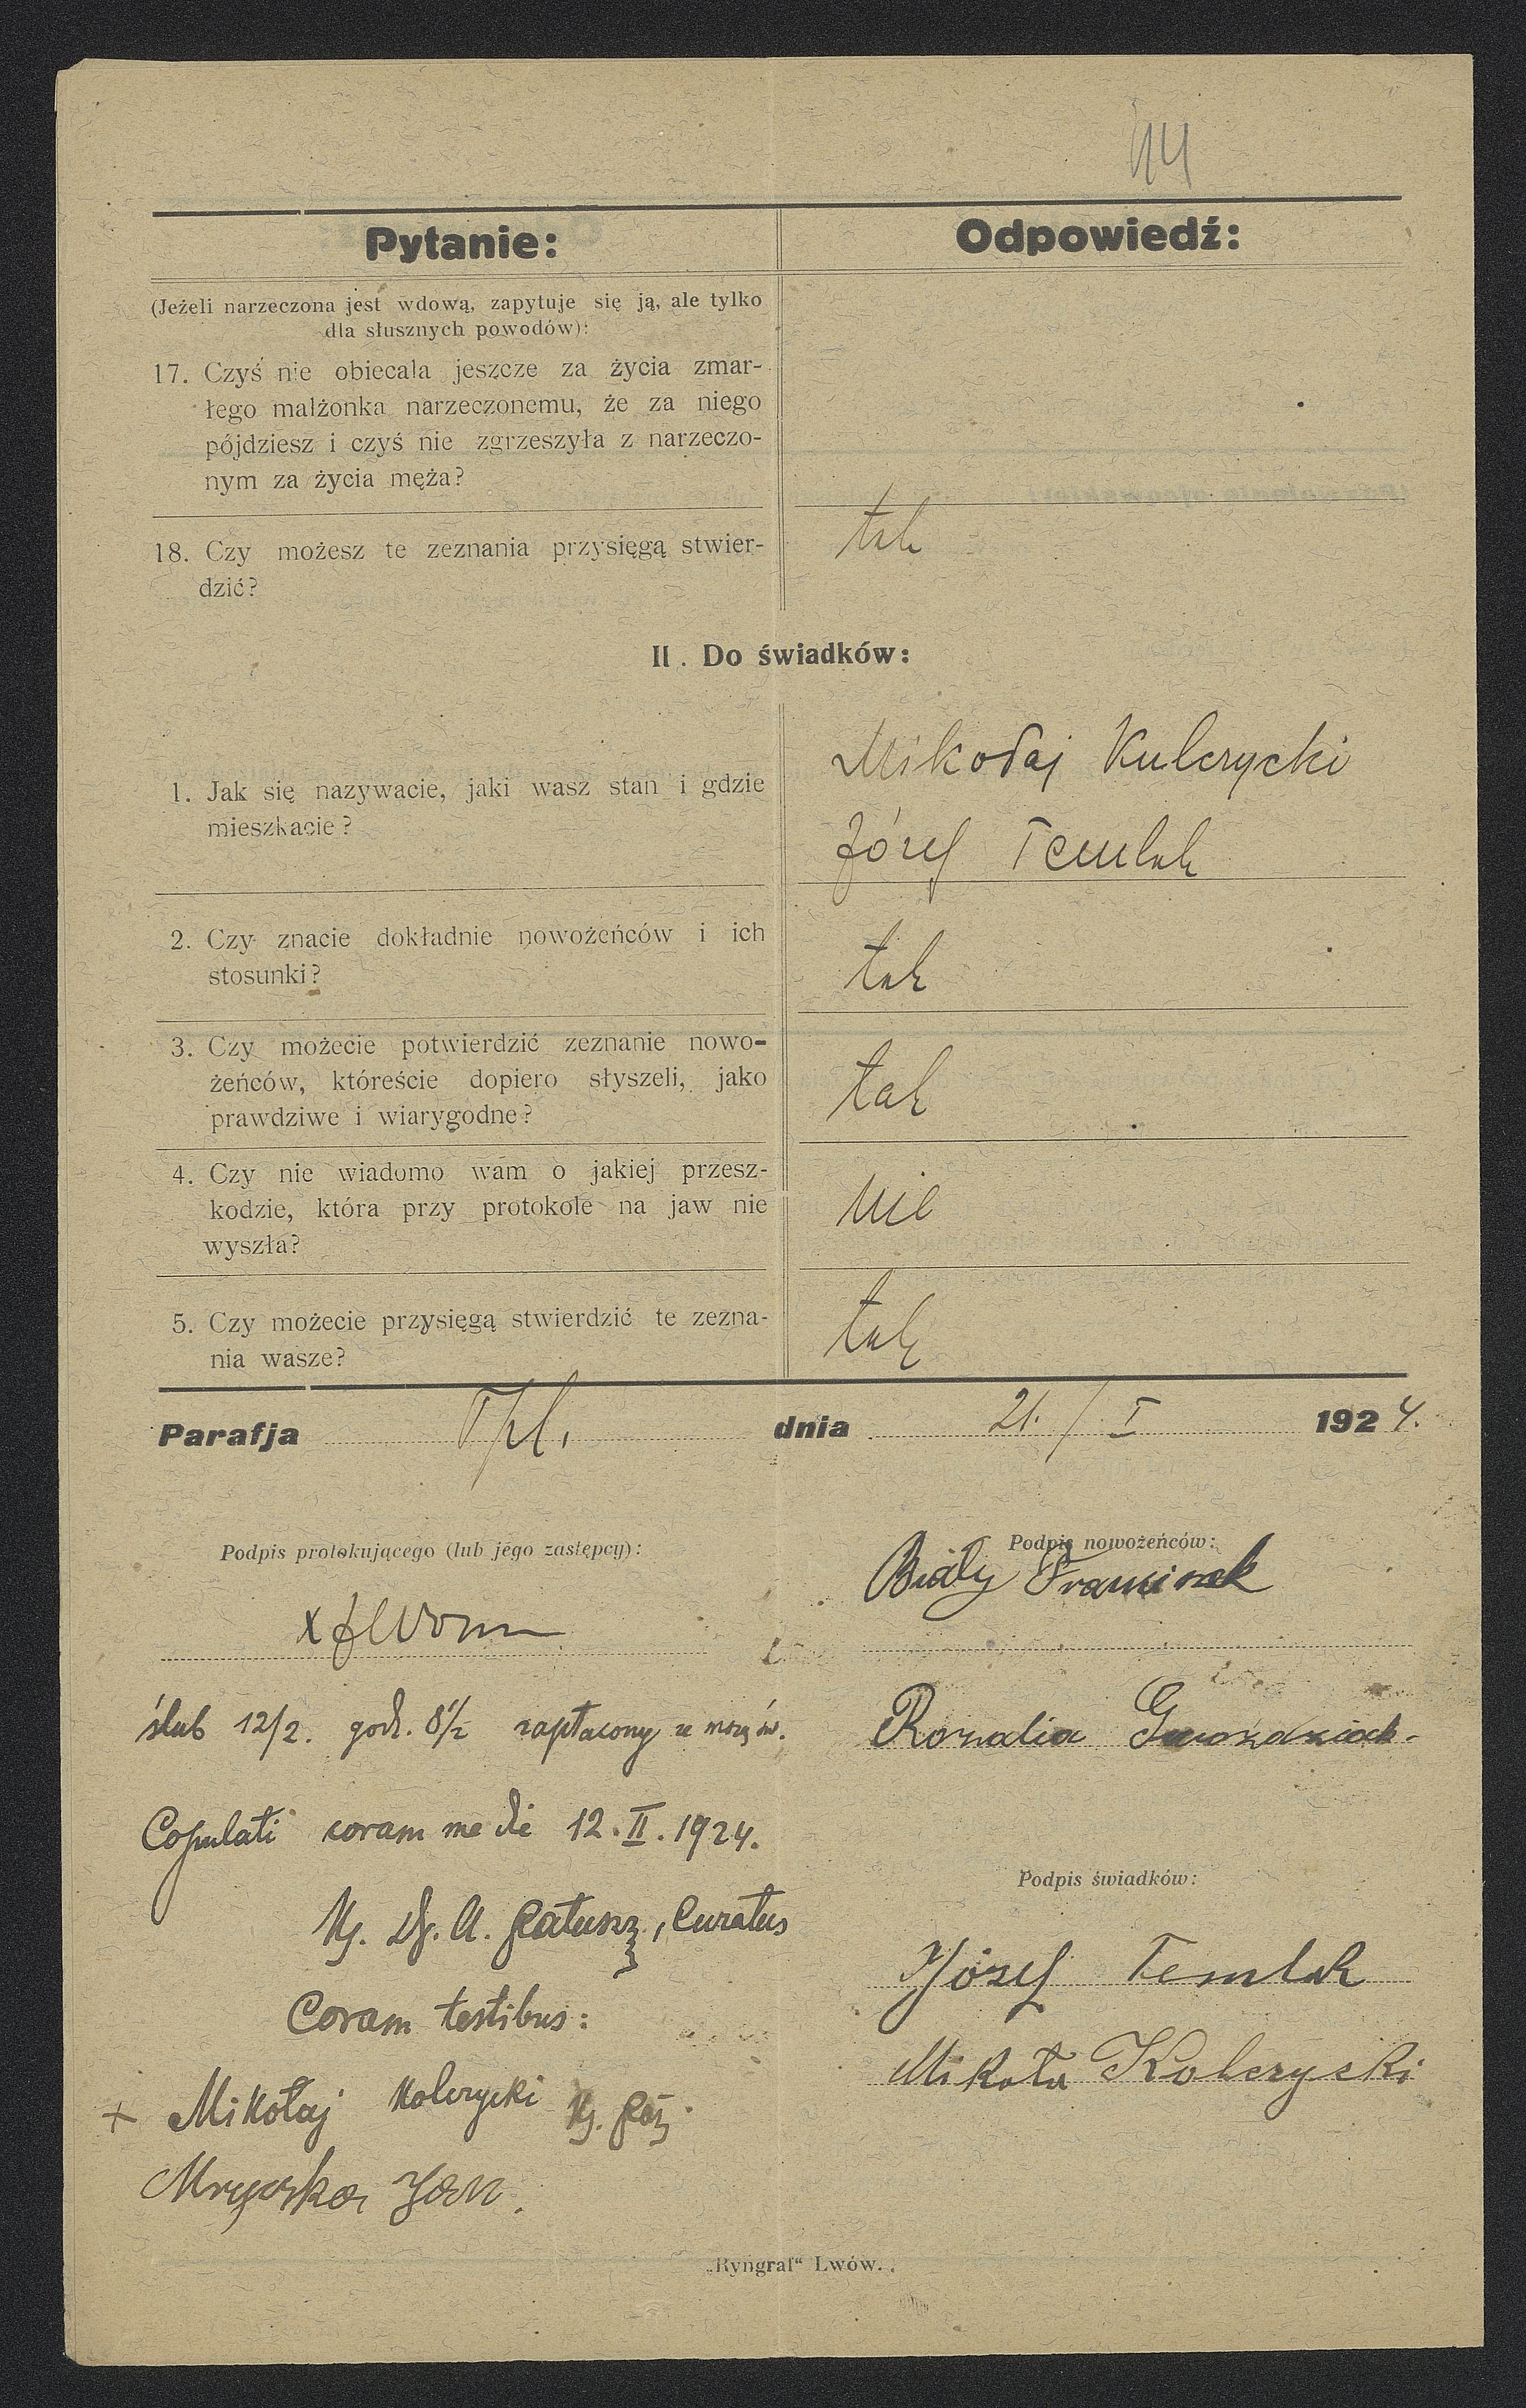 Pytanie:
Odpowiedź:
(Jeżeli narzeczona jest wdową, zapytuje się ją, ale tylko
dla słusznych powodów):
17. Czyś nie obiecała jeszcze za życia zmar-
łego małżonka narzeczonemu, że za niego
pójdziesz i czyś nie zgrzeszyła z narzeczo-
nym za życia męża?
18. Czy możesz te zeznania przysięgą stwier-
dzić?
tak
II. Do świadków:
1. Jak się nazywacie, jaki wasz stan i gdzie
mieszkacie?
Mikołaj Kulczycki
Józef Temlak
2. Czy znacie dokładnie nowożeńców i ich
stosunki?
tak
3. Czy możecie potwierdzić zeznanie nowo-
żeńców, któreście dopiero słyszeli, jako
prawdziwe i wiarygodne?
tak
4. Czy nie wiadomo wam o jakiej przesz-
kodzie, która przy protokole na jaw nie
wyszła?
nie
5. Czy możecie przysięgą stwierdzić te zezna-
nia wasze?
tak
Parafja dnia 21. / I 1924.
Podpis protokującego (lub jego zastępcy):
Podpis nowożeńców:
Biały Franciszek
ślub 12/2. godz. 8 1/2 zapłacony z mszą św.
Rozalia
Copulati coram me die 12. II. 1924.
Podpis świadków:
X. Dr. A. Ratusz, Curatus
Józef Temlak
Coram testibus:
Mikoła Kolczycki
+ Mikołaj Kolczycki
Jan.
„Ryngraf“ Lwów.